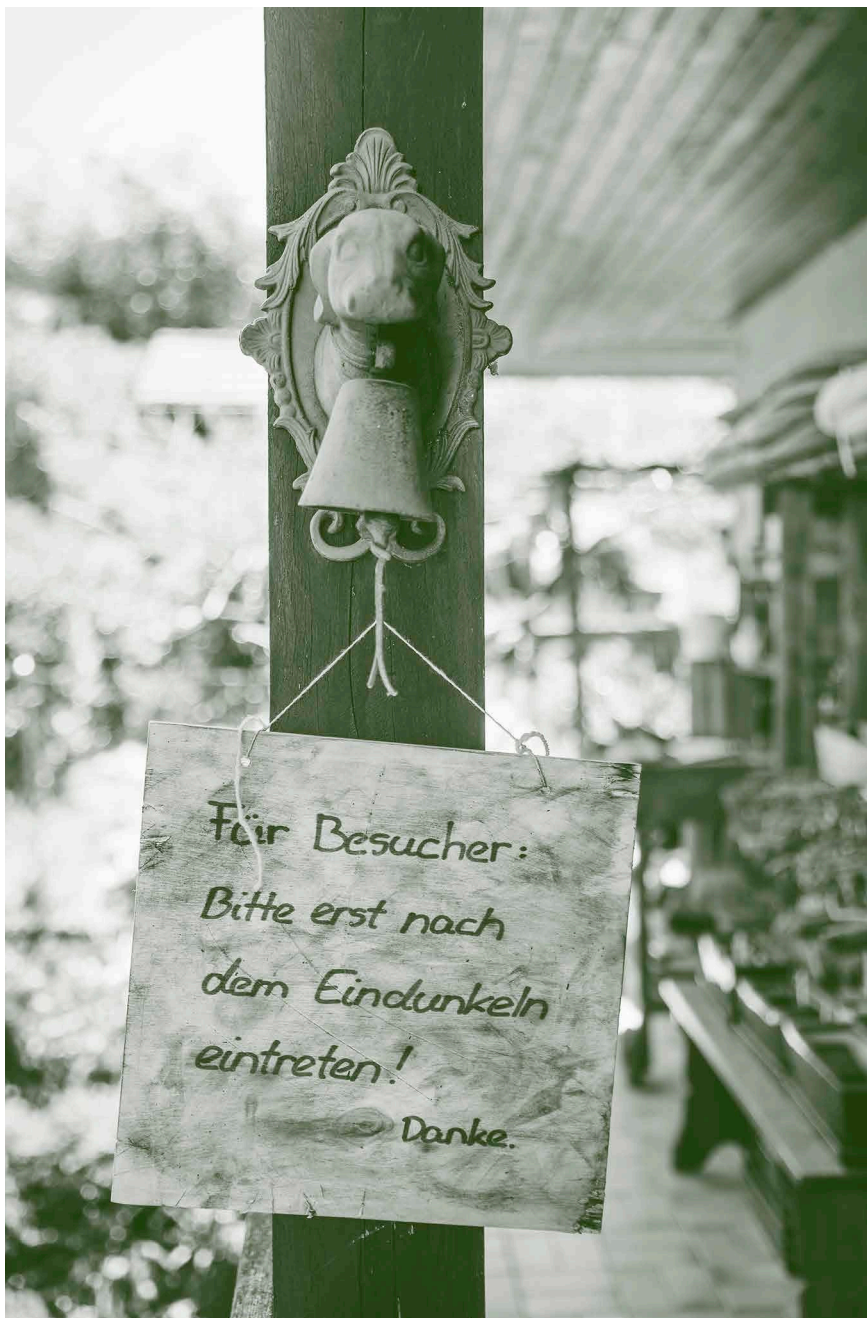 Für Besucher:
Bitte erst nach
dem Eindunkeln
eintreten!
Danke.